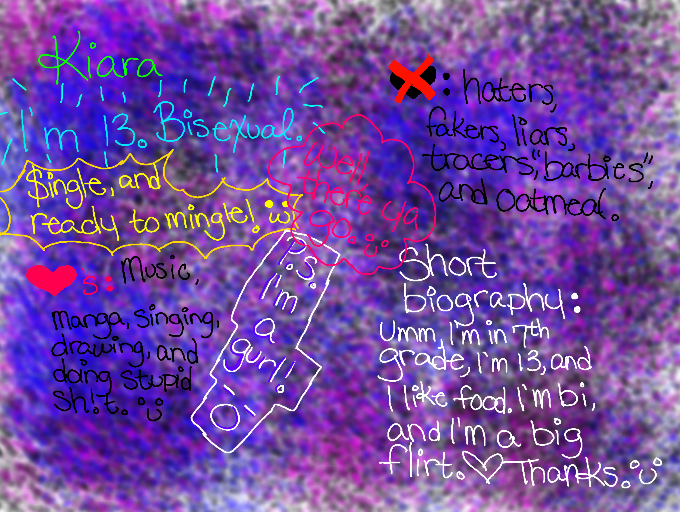 Kiara
I'm 13. Bisexual.
Single, and
ready to mingle!
s: Music,
manga, singing,
drawing, and
doing stupid
sh!t.
P.S.
I'm
a
gurl!
Well,
there ya
go.
: haters,
fakers, liars,
tracers, "barbies",
and oatmeal.
Short
biography:
Umm, I'm in 7th
grade, I'm 13, and
I like food. I'm bi,
and I'm a big
flirt. Thanks.